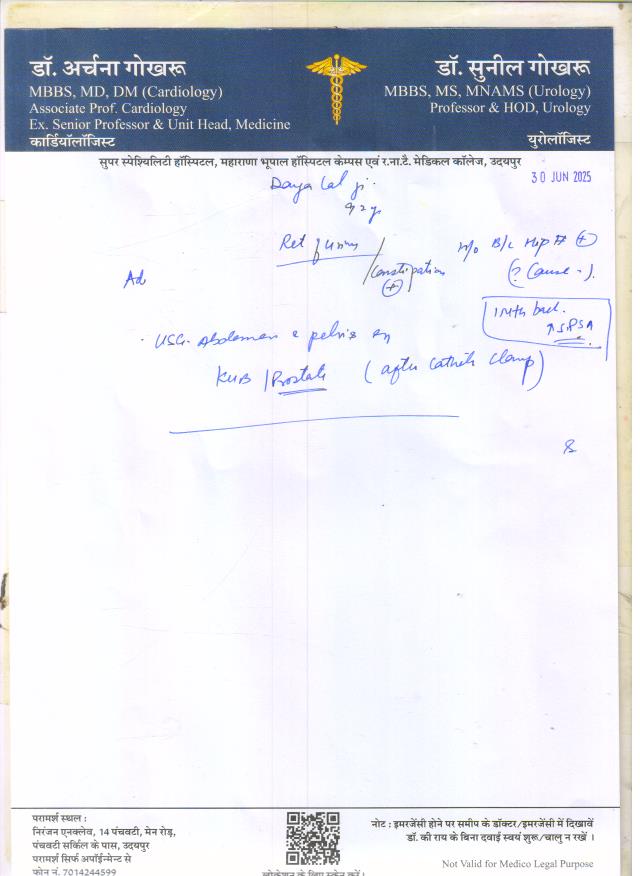 डॉ. अर्चना गोखरू
MBBS, MD, DM (Cardiology)
Associate Prof. Cardiology
Ex. Senior Professor & Unit Head, Medicine
कार्डियॉलॉजिस्ट
डॉ. सुनील गोखरू
MBBS, MS, MNAMS (Urology)
Professor & HOD, Urology
युरोलॉजिस्ट
सुपर स्पेश्यिलिटी हॉस्पिटल, महाराणा भूपाल हॉस्पिटल केम्पस एवं र.ना.टै. मेडिकल कॉलेज, उदयपुर
30 JUN 2025
Daya Lal ji
Ret of urine / Constipation (+)
H/o B/L Hip # (+)
(? Cause -).
Ad
1 Mth back.
↑ S. PSA
USG. Abdomen & pelvis
KUB / Prostate (after catheter clamp)
परामर्श स्थल :
निरंजन एनक्लेव, 14 पंचवटी, मेन रोड़,
पंचवटी सर्किल के पास, उदयपुर
परामर्श सिर्फ अपॉईन्मेन्ट से
फोन नं. 7014244599
लोकेशन के लिए स्केन करें।
नोट : इमरजेंसी होने पर समीप के डॉक्टर/इमरजेंसी में दिखावें
डॉ. की राय के बिना दवाई स्वयं शुरू/चालु न रखें ।
Not Valid for Medico Legal Purpose